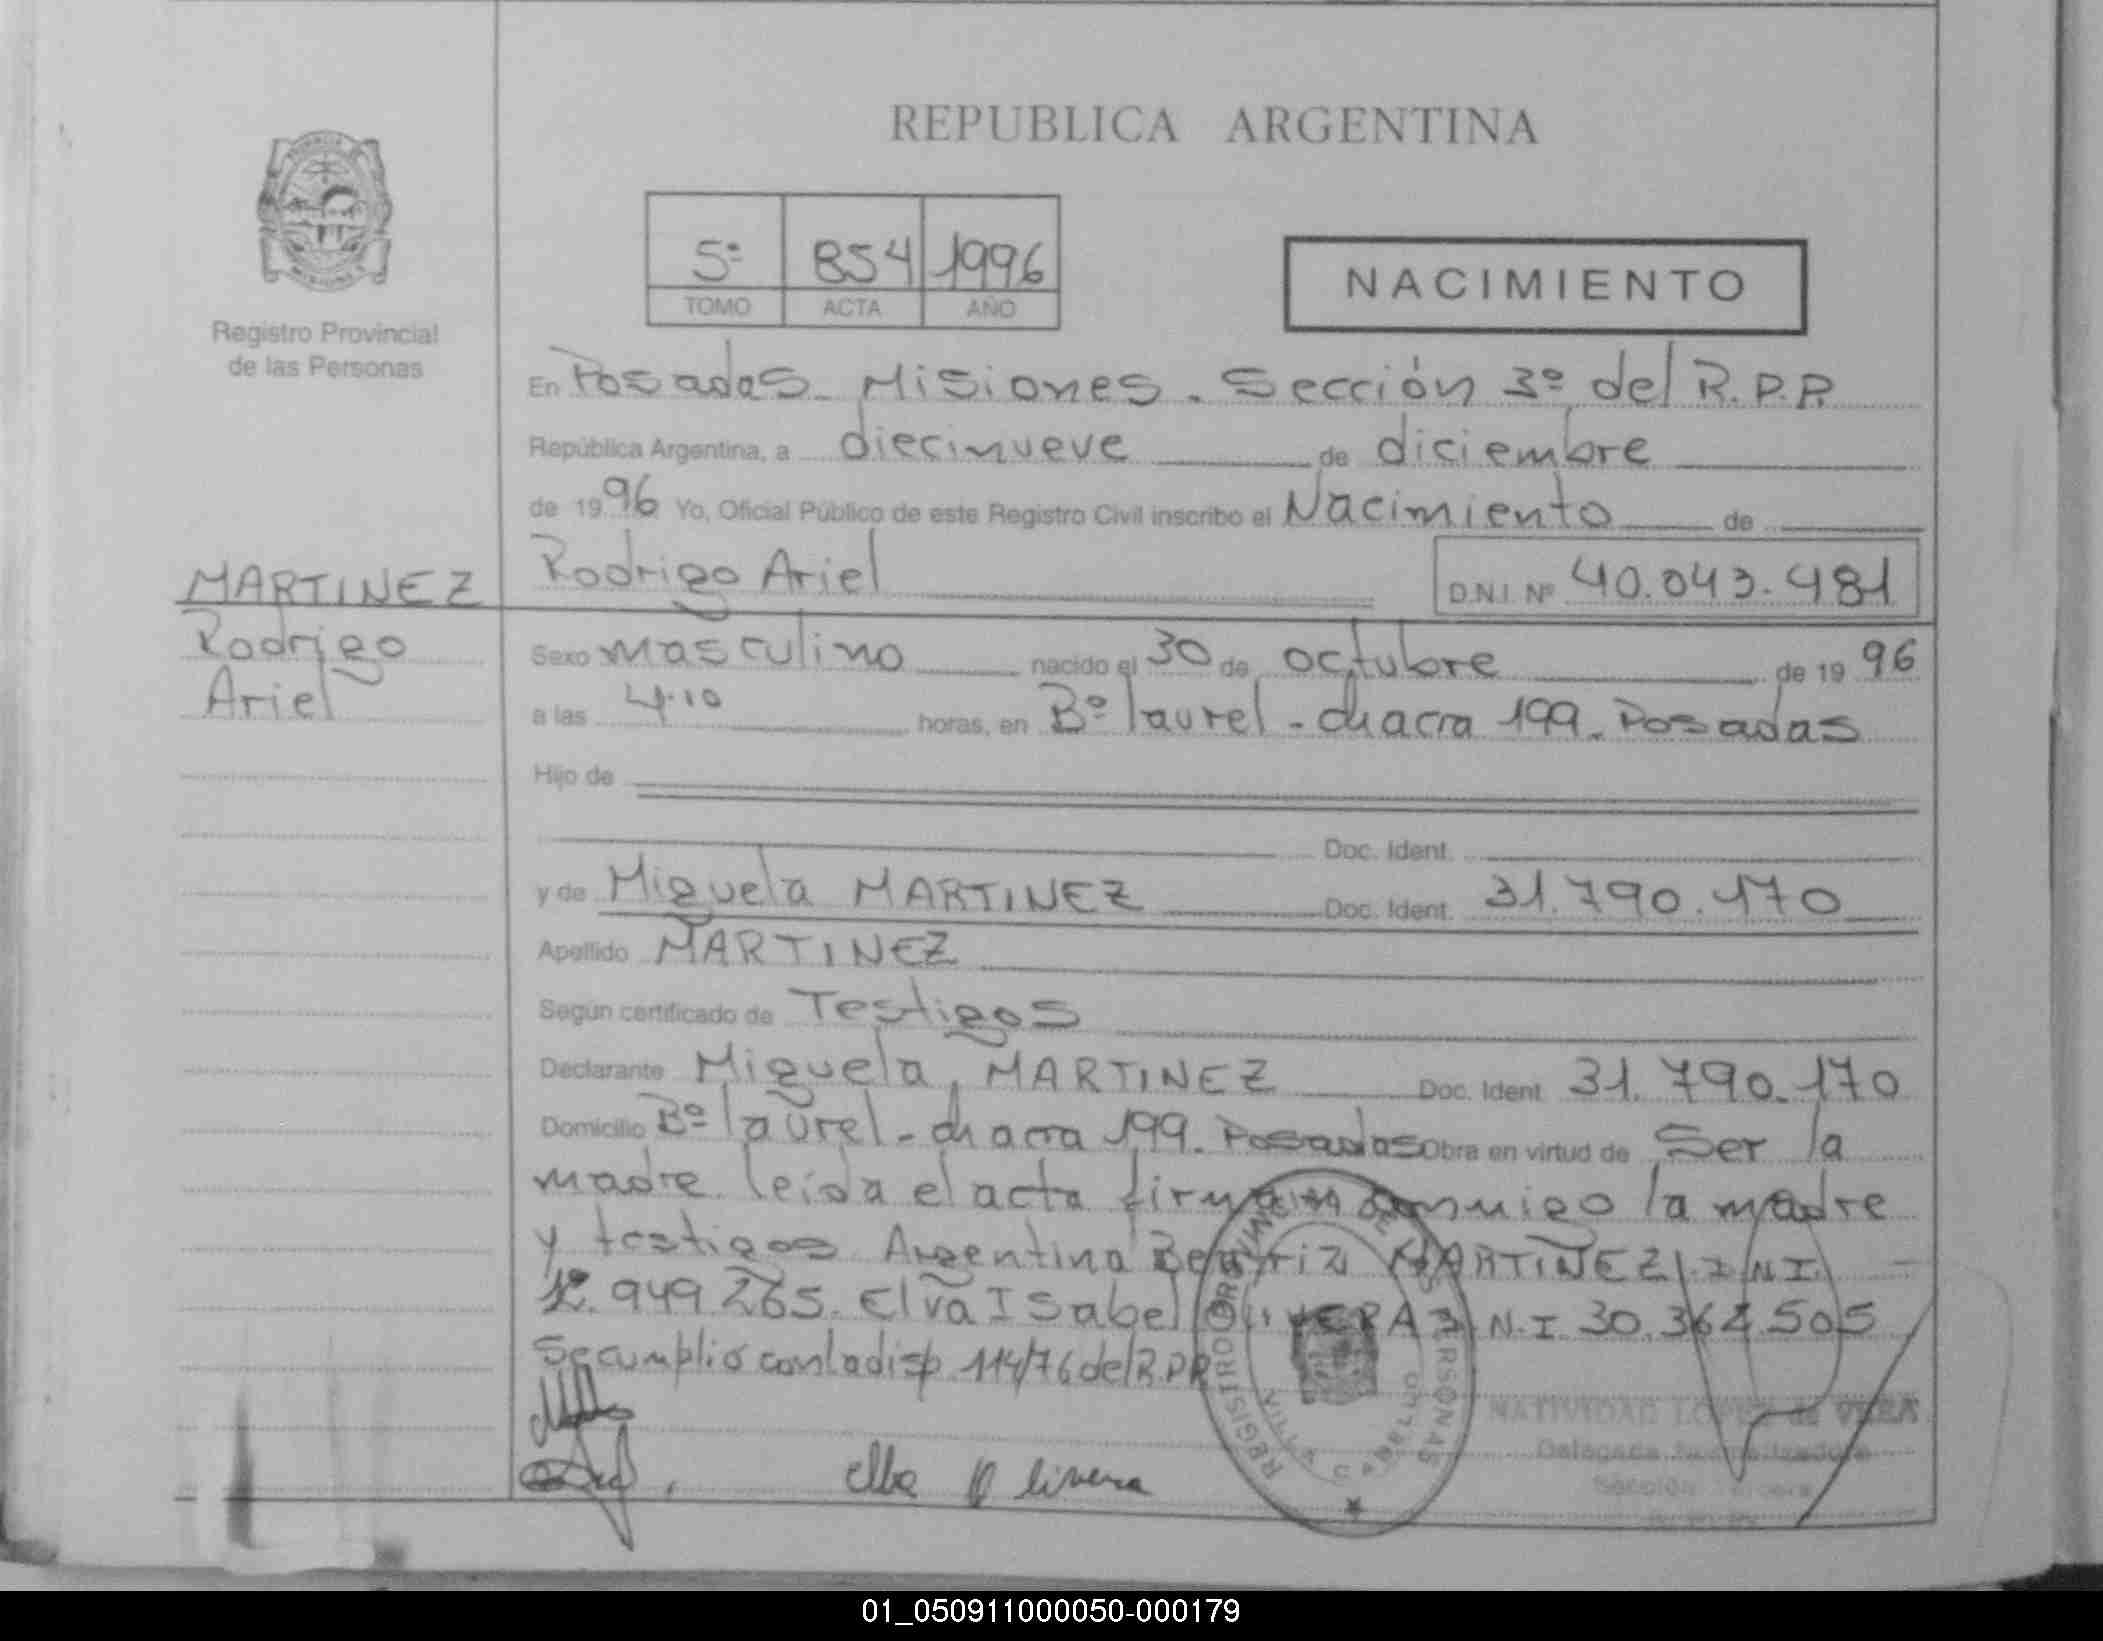 REPUBLICA ARGENTINA
5º 854 1996
TOMO ACTA AÑO
NACIMIENTO
Registro Provincial
de las Personas
En Posadas - Misiones. Sección 3º del R.P.P.
República Argentina, a diecinueve de diciembre
de 1996 Yo, Oficial Público de este Registro Civil inscribo el Nacimiento de
Rodrigo Ariel D.N.I. Nº 40.043.481
MARTINEZ
Rodrigo
Ariel
Sexo masculino nacido el 30 de octubre de 1996
a las 4.10 horas, en Bº laurel - chacra 199. Posadas
Hijo de
Doc. Ident.
y de Miguela MARTINEZ Doc. Ident. 31.790.170
Apellido MARTINEZ
Según certificado de Testigos
Declarante Miguela, MARTINEZ Doc. Ident. 31.790.170
Domicilio Bº laurel - chacra 199. Posadas Obra en virtud de Ser la
madre leída el acta firman conmigo la madre
y testigos Argentina Beatriz MARTINEZ D.N.I.
12.949.265. Elva Isabel OLIVERA D.N.I 30.362.505
Se cumplió con la disp. 114/76 del R.P.P.
Elba Olivera
REGISTRO PROVINCIAL DE LAS PERSONAS
NATIVIDAD LOPEZ de VERA
Delegada Normalizadora
Sección Tercera
01_050911000050-000179